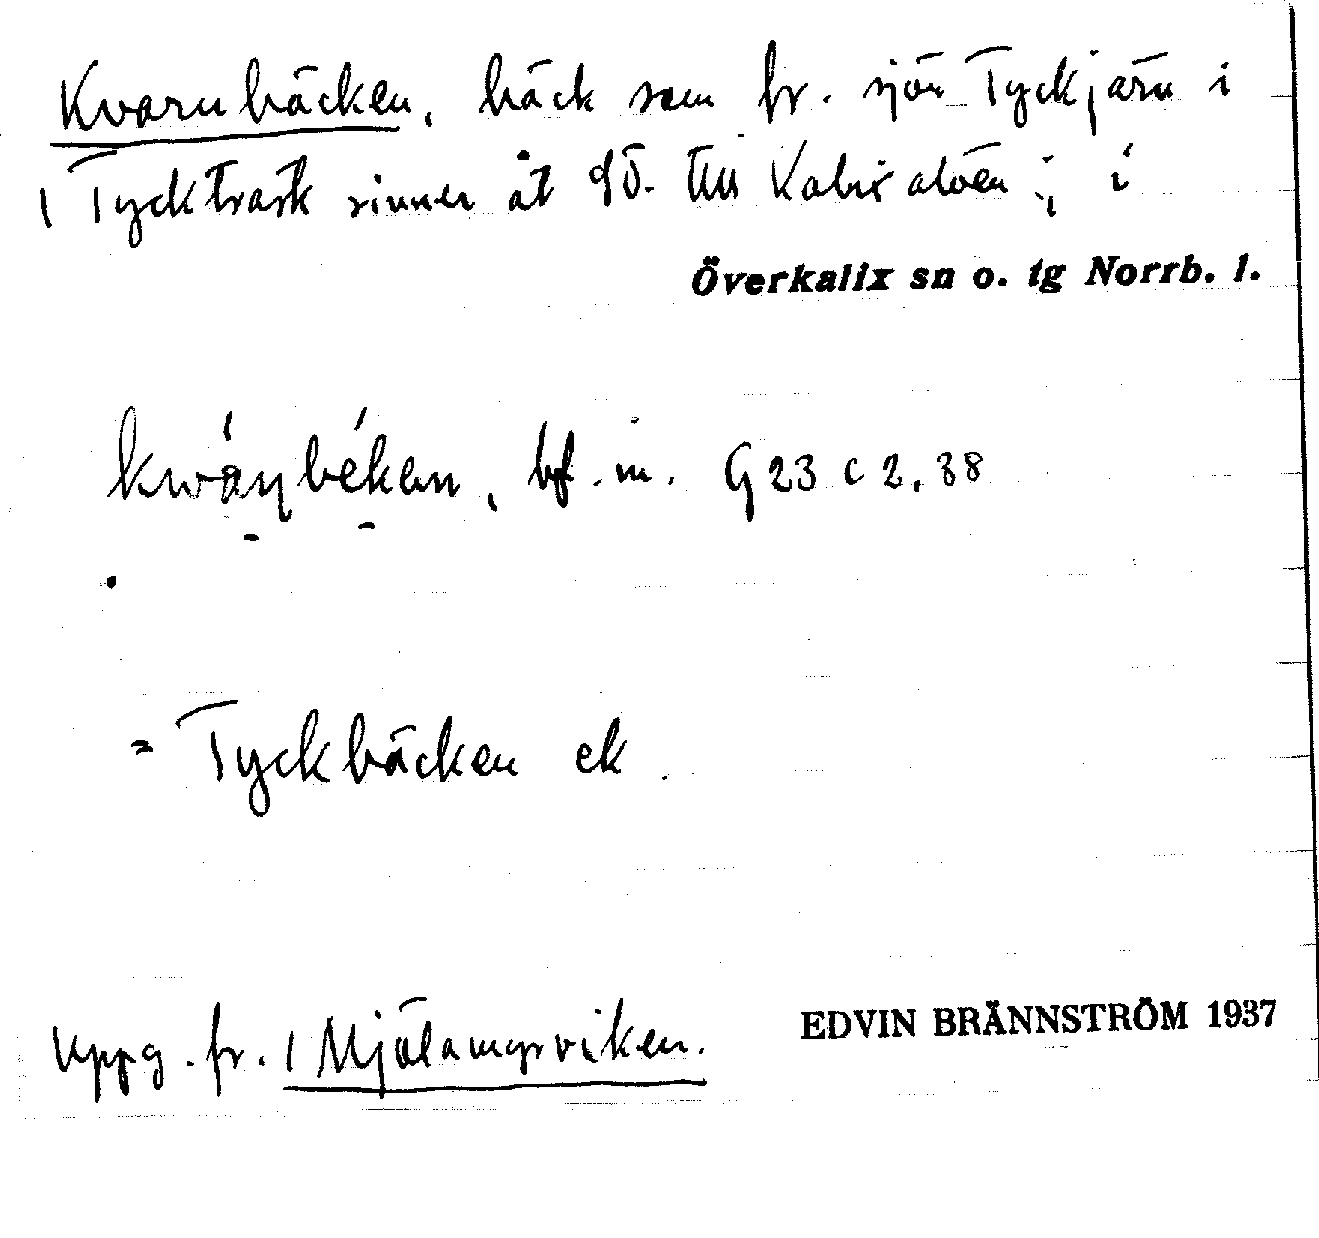 Kvarnbäcken, bäck som fr. sjön Tyckjärn i
/ Tyckträsk rinner åt SÖ. till Kalix älven; i
Överkalix sn o. tg Norrb. l.
bf. m. G 23 c 2, 38
= Tyckbäcken ek.
Uppg. fr. / Mjölamyrviken.
EDVIN BRÄNNSTRÖM 1937